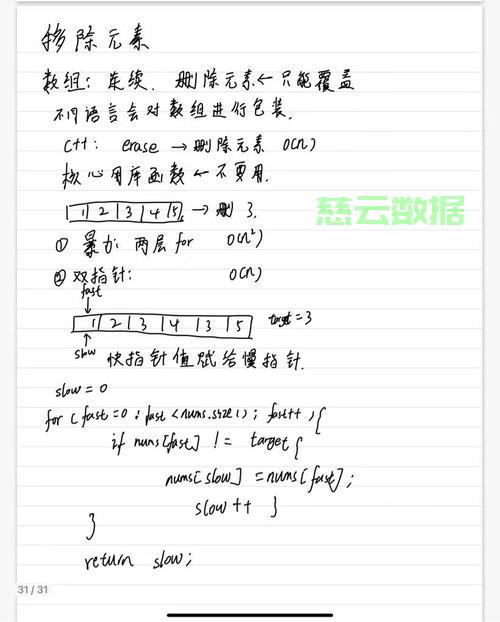 移除元素
数组：连续. 删除元素←只能覆盖
不同语言会对数组进行包装.
C++: erase → 删除元素 O(n)
核心用库函数←不要用.
1|2|3|4|5 → 删 3.
慈云数据
① 暴力: 两层for O(n²)
② 双指针: O(n)
fast
1|2|3|4|3|5 target=3
slow 快指针值赋给慢指针.
slow = 0
for (fast=0; fast<nums.size(); fast++){
if nums[fast] != target{
nums[slow] = nums[fast];
slow++ }
}
return slow;
31 / 31